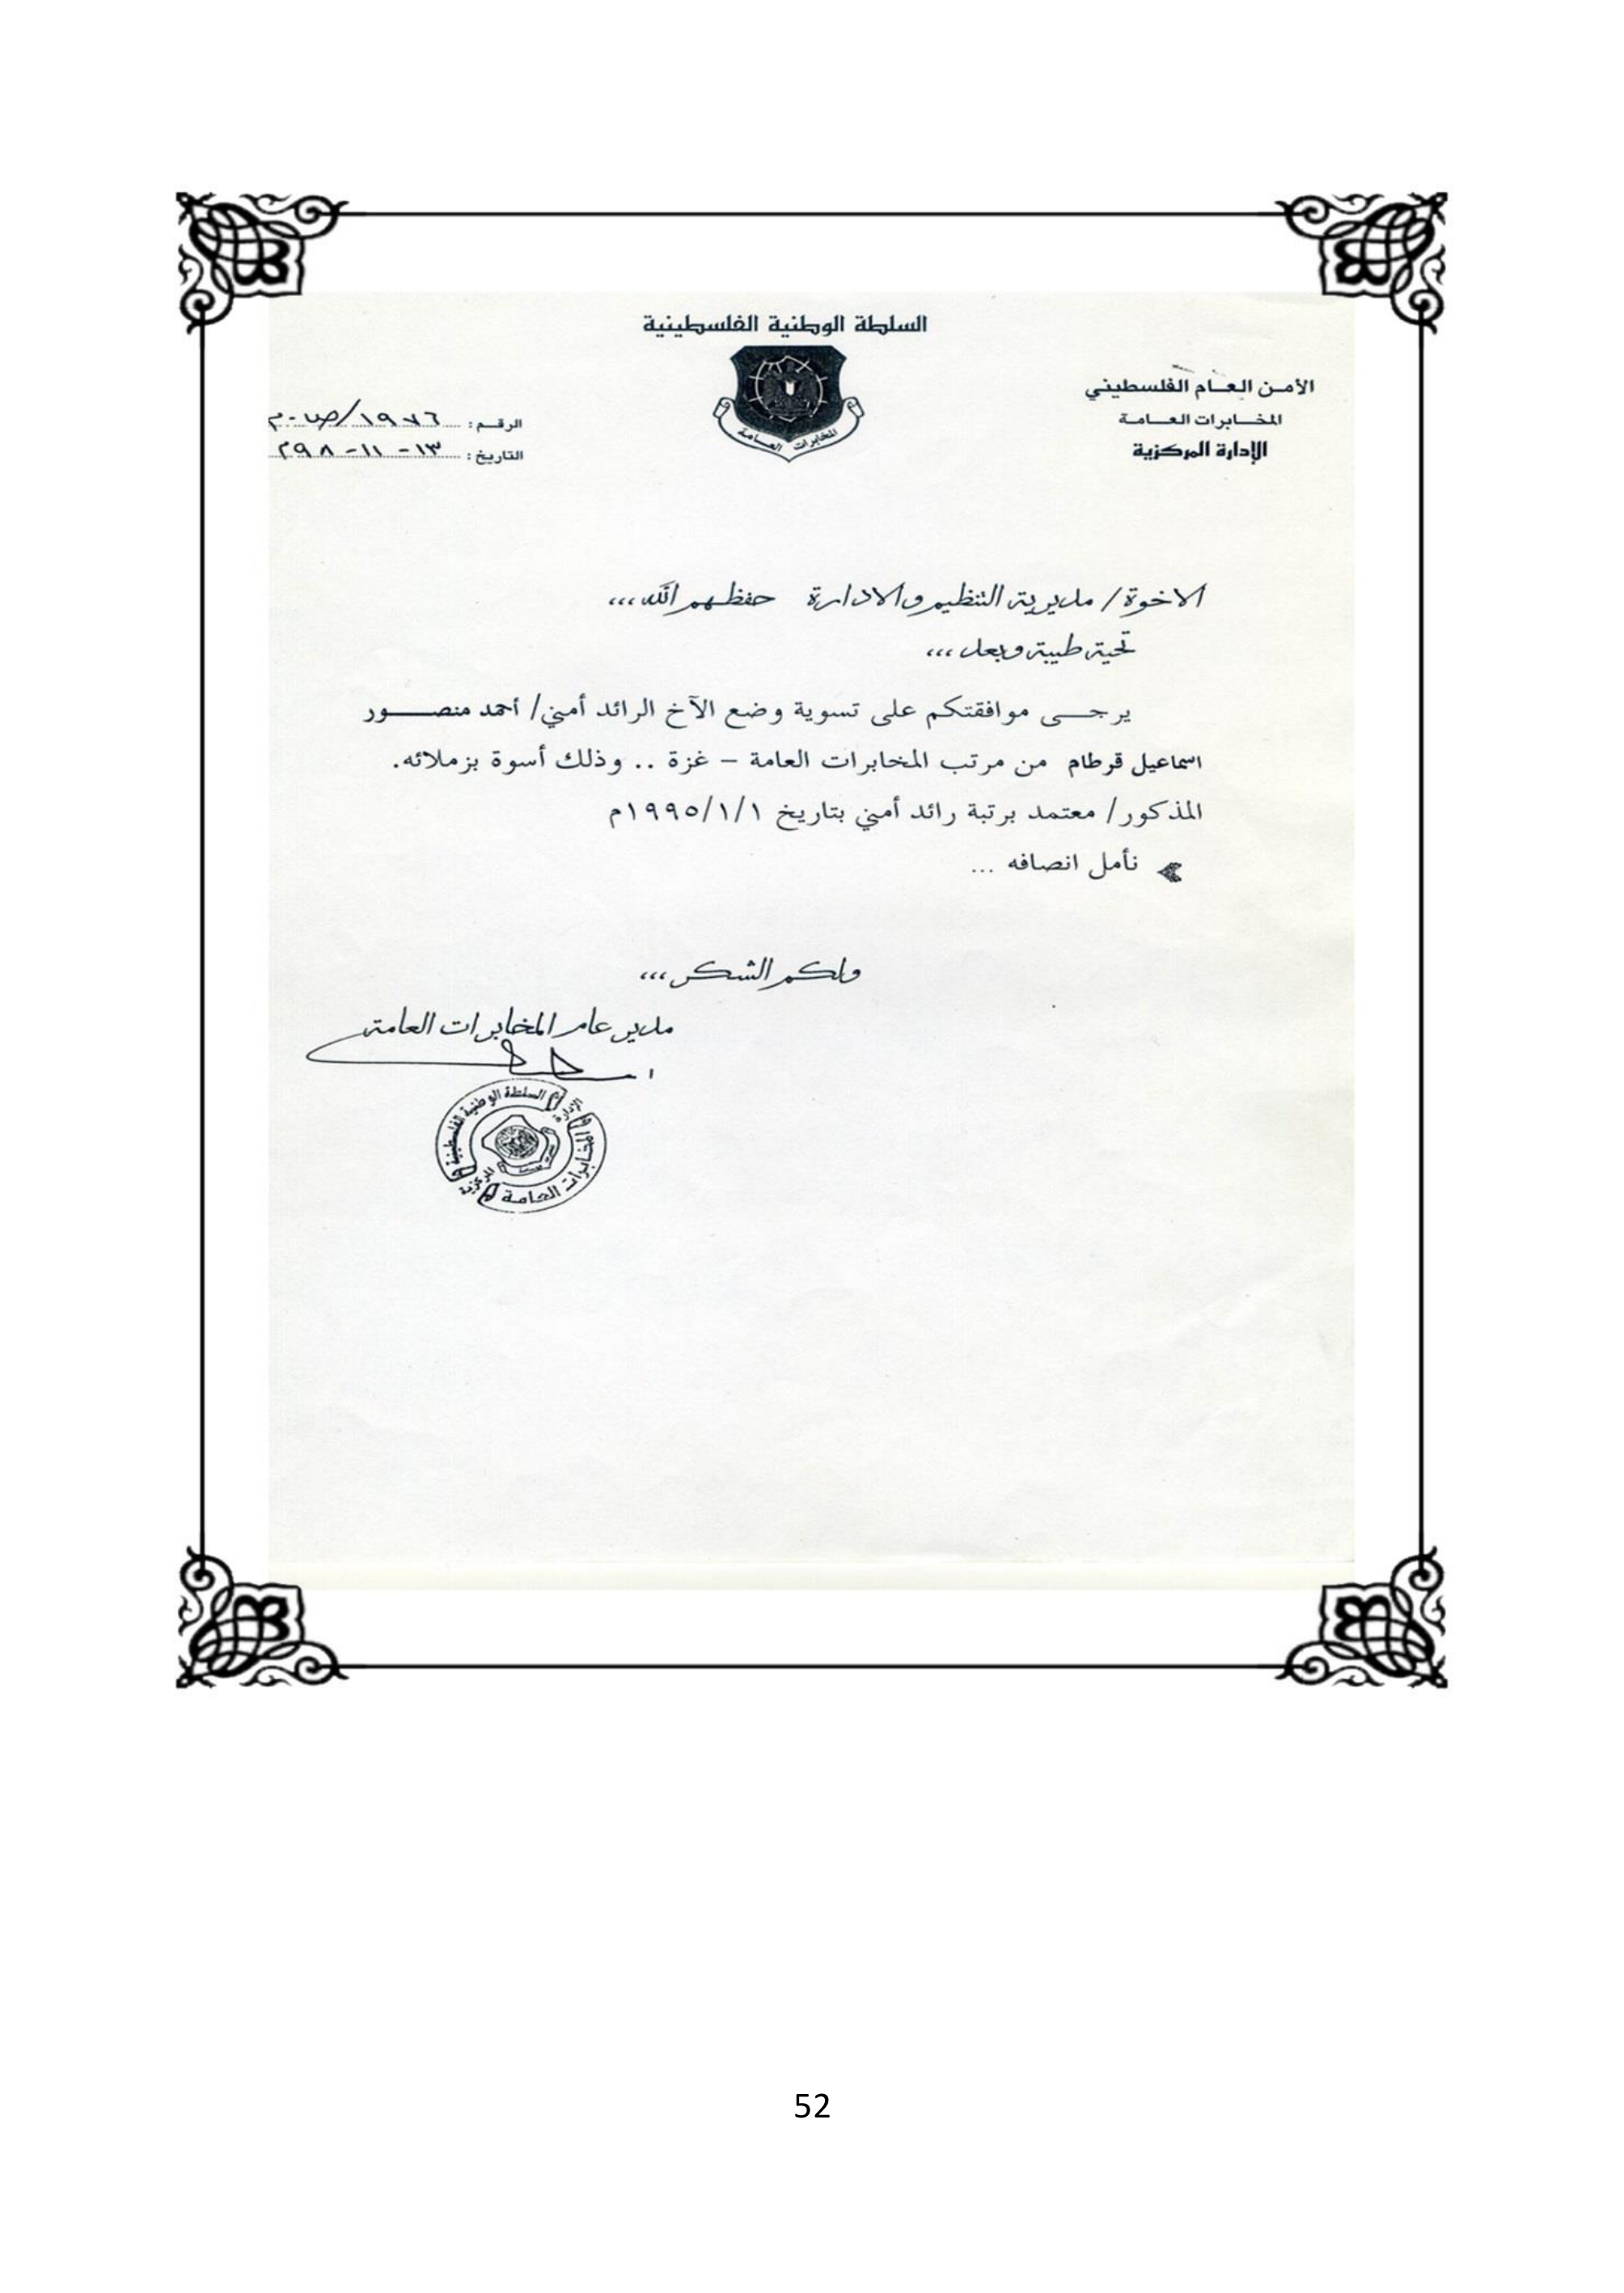 السلطة الوطنية الفلسطينية
المخابرات العامة
الأمـن العـام الفلسطيني
المخـابرات العـامة
الإدارة المركزية
الرقـم : ١٩٧٦/
التاريخ : ١٣-١١-٩٨م
الاخوة/ مديرية التنظيم والادارة حفظهم الله،،،
تحية طيبة وبعد،،،
يرجـى موافقتكم على تسوية وضع الآخ الرائد أمني/ أحمد منصـور
اسماعيل قرطام من مرتب المخابرات العامة – غزة .. وذلك أسوة بزملائه.
المذكور/ معتمد برتبة رائد أمني بتاريخ ١/١/١٩٩٥م
نأمل انصافه ...
ولكم الشكر،،،
مدير عام المخابرات العامة
السلطة الوطنية الفلسطينية
الإدارة المركزية
المخابرات العامة
52